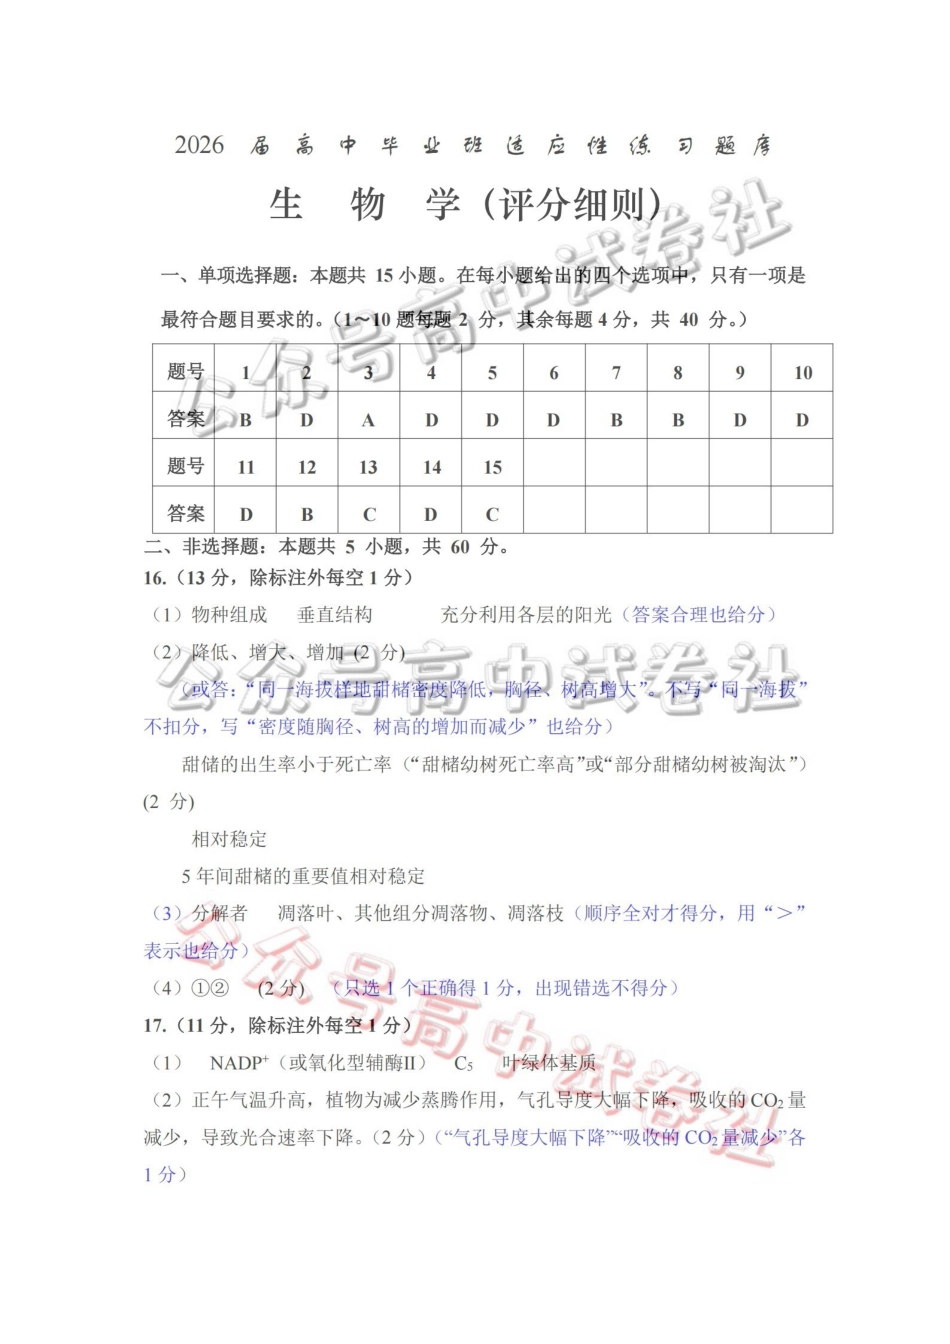 2026 届高中毕业班适应性练习题库
生 物 学（评分细则）
一、单项选择题：本题共 15 小题。在每小题给出的四个选项中，只有一项是
最符合题目要求的。（1～10 题每题 2 分，其余每题 4 分，共 40 分。）
题号 1 2 3 4 5 6 7 8 9 10
答案 B D A D D D B B D D
题号 11 12 13 14 15
答案 D B C D C
二、非选择题：本题共 5 小题，共 60 分。
16.（13 分，除标注外每空 1 分）
（1）物种组成 垂直结构 充分利用各层的阳光（答案合理也给分）
（2）降低、增大、增加 (2 分)
（或答：“同一海拔样地甜槠密度降低，胸径、树高增大”。不写“同一海拔”
不扣分，写“密度随胸径、树高的增加而减少”也给分）
甜储的出生率小于死亡率（“甜槠幼树死亡率高”或“部分甜槠幼树被淘汰”）
(2 分)
相对稳定
5 年间甜槠的重要值相对稳定
（3）分解者 凋落叶、其他组分凋落物、凋落枝（顺序全对才得分，用“＞”
表示也给分）
（4）①② (2 分) （只选 1 个正确得 1 分，出现错选不得分）
17.（11 分，除标注外每空 1 分）
（1） NADP⁺（或氧化型辅酶II） C₅ 叶绿体基质
（2）正午气温升高，植物为减少蒸腾作用，气孔导度大幅下降，吸收的 CO₂ 量
减少，导致光合速率下降。（2 分）（“气孔导度大幅下降”“吸收的 CO₂ 量减少”各
1 分）
公众号高中试卷社
公众号高中试卷社
公众号高中试卷社